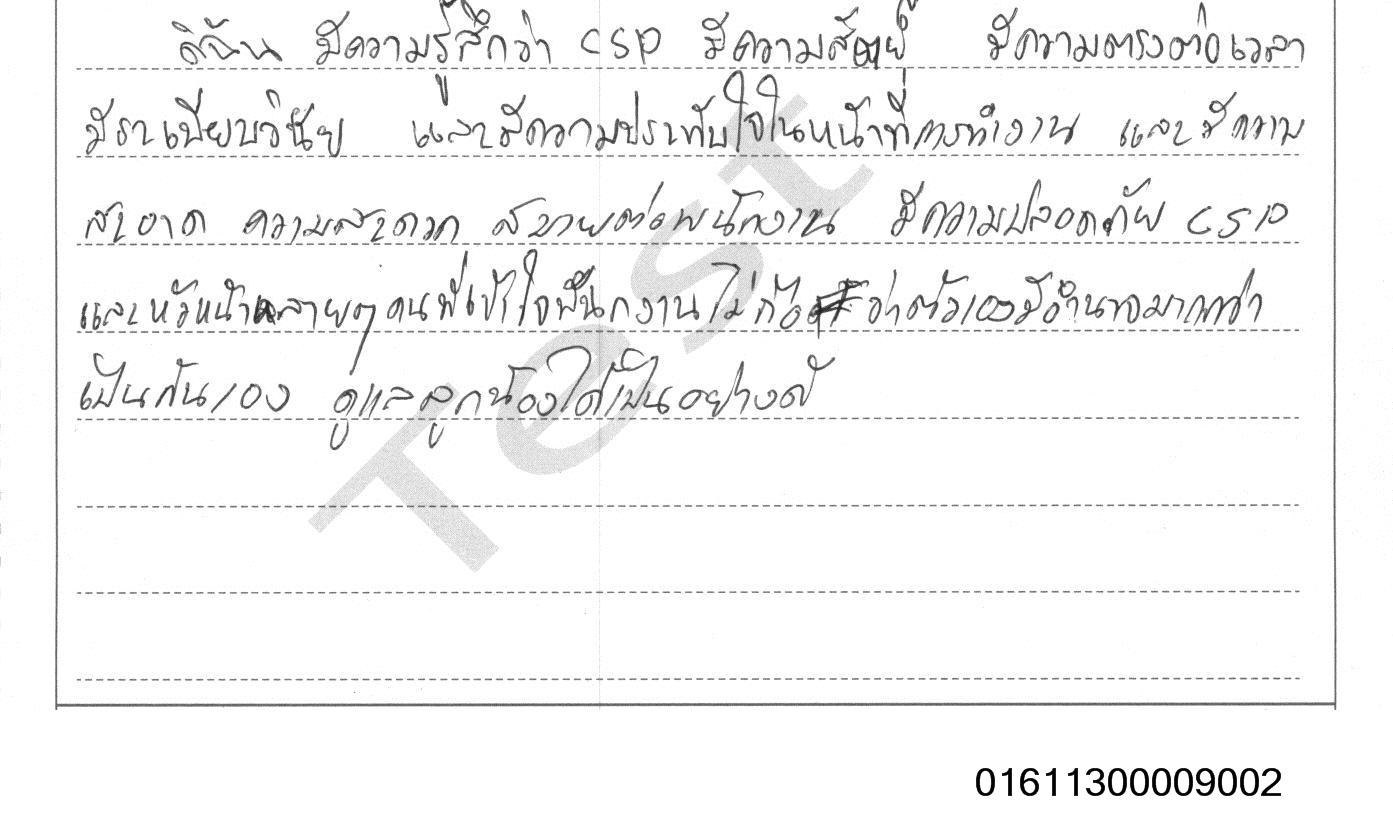 ดิฉัน มีความรู้สึกว่า CSP มีความสัตย์ มีความตรงต่อเวลา
มีระเบียบวินัย และมีความประทับใจในหน้าที่การทำงาน และมีความ
สะอาด ความสะดวก สบายต่อพนักงาน มีความปลอดภัย CSP
และหัวหน้าหลายๆคนที่เข้าใจพนักงานไม่ถือ ว่าตัวเองมีอำนาจมากกว่า
เป็นกันเอง ดูแลลูกน้องได้เป็นอย่างดี
Test
01611300009002